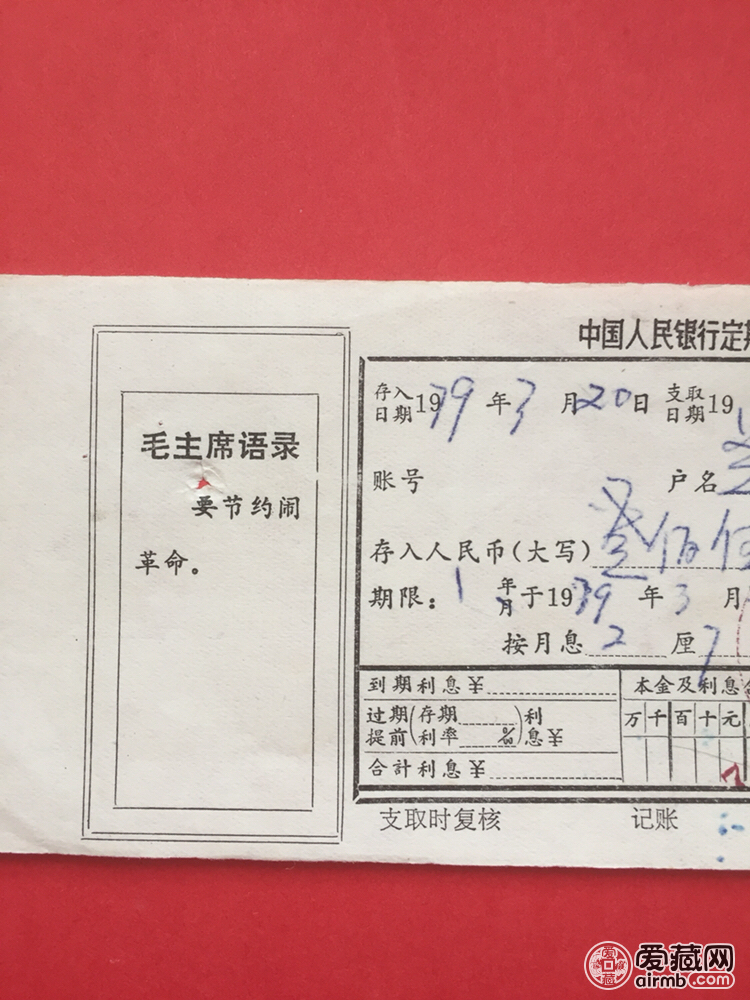 毛主席语录
要节约闹
革命。
中国人民银行定期
存入日期 1939年3月20日 支取日期 19
账号 户名
存入人民币(大写) 壹佰伍
期限:1 年月于1939年3月
按月息2厘7
到期利息¥ 本金及利息
过期提前(存期 利率 %)利息¥ 万千百十元
合計利息¥
支取时复核 记账
爱藏网
airmb.com